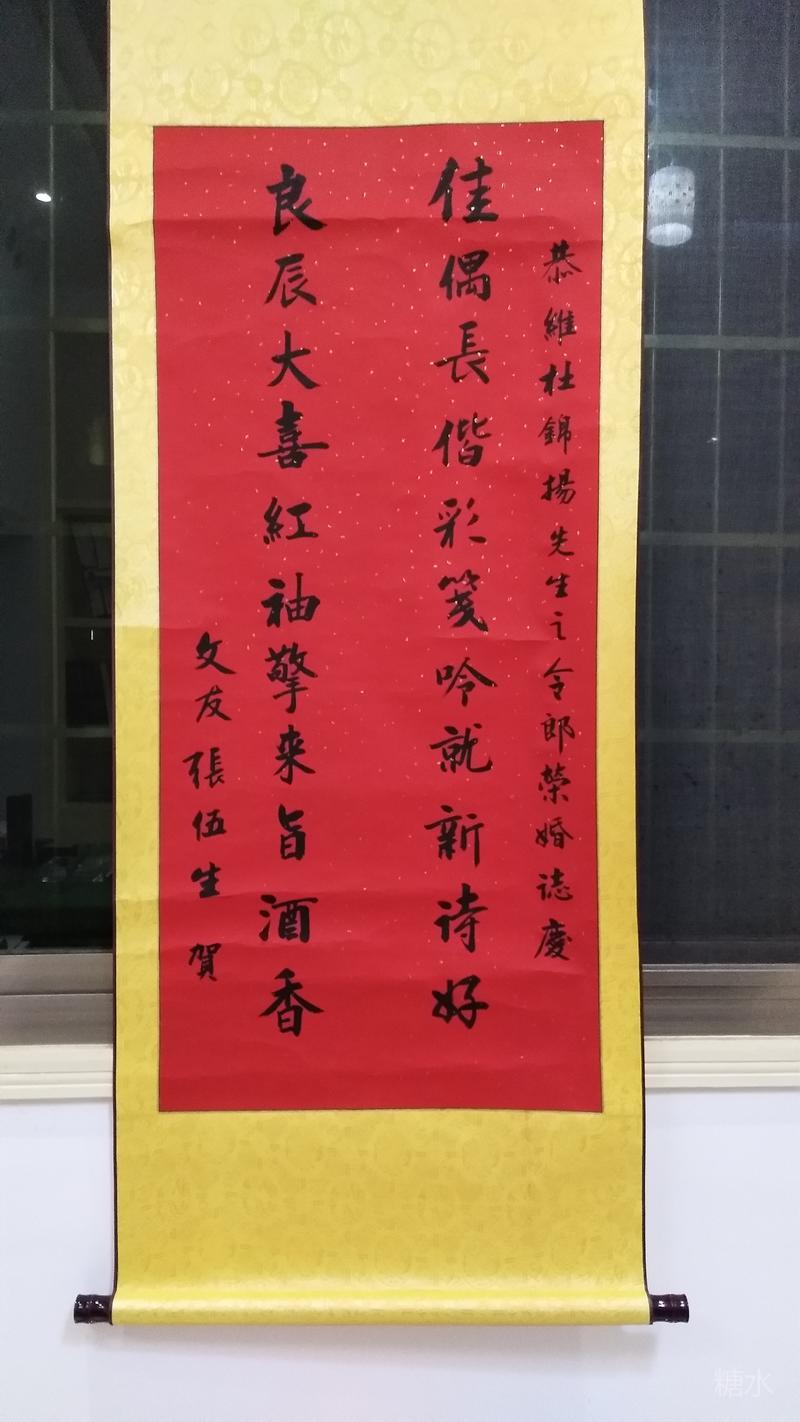 恭維杜錦揚先生之令郎榮婚誌慶
佳偶長偕彩箋吟就新诗好
良辰大喜紅袖擎来旨酒香
文友張伍生賀
糖水